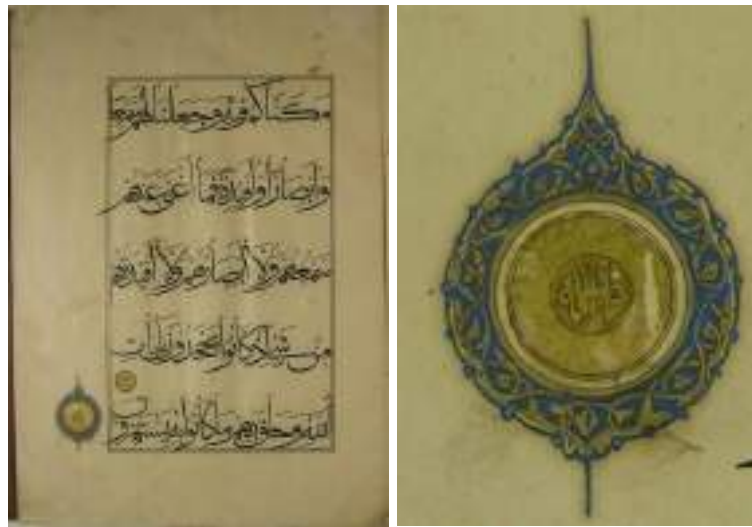 مكناكم فيه وجعلنا لهم سمعا
وأبصارا وأفئدة فما أغنى عنهم
سمعهم ولا أبصارهم ولا أفئدتهم
من شيء إذ كانوا يجحدون بآيات
الله وحاق بهم ما كانوا به يستهزؤن